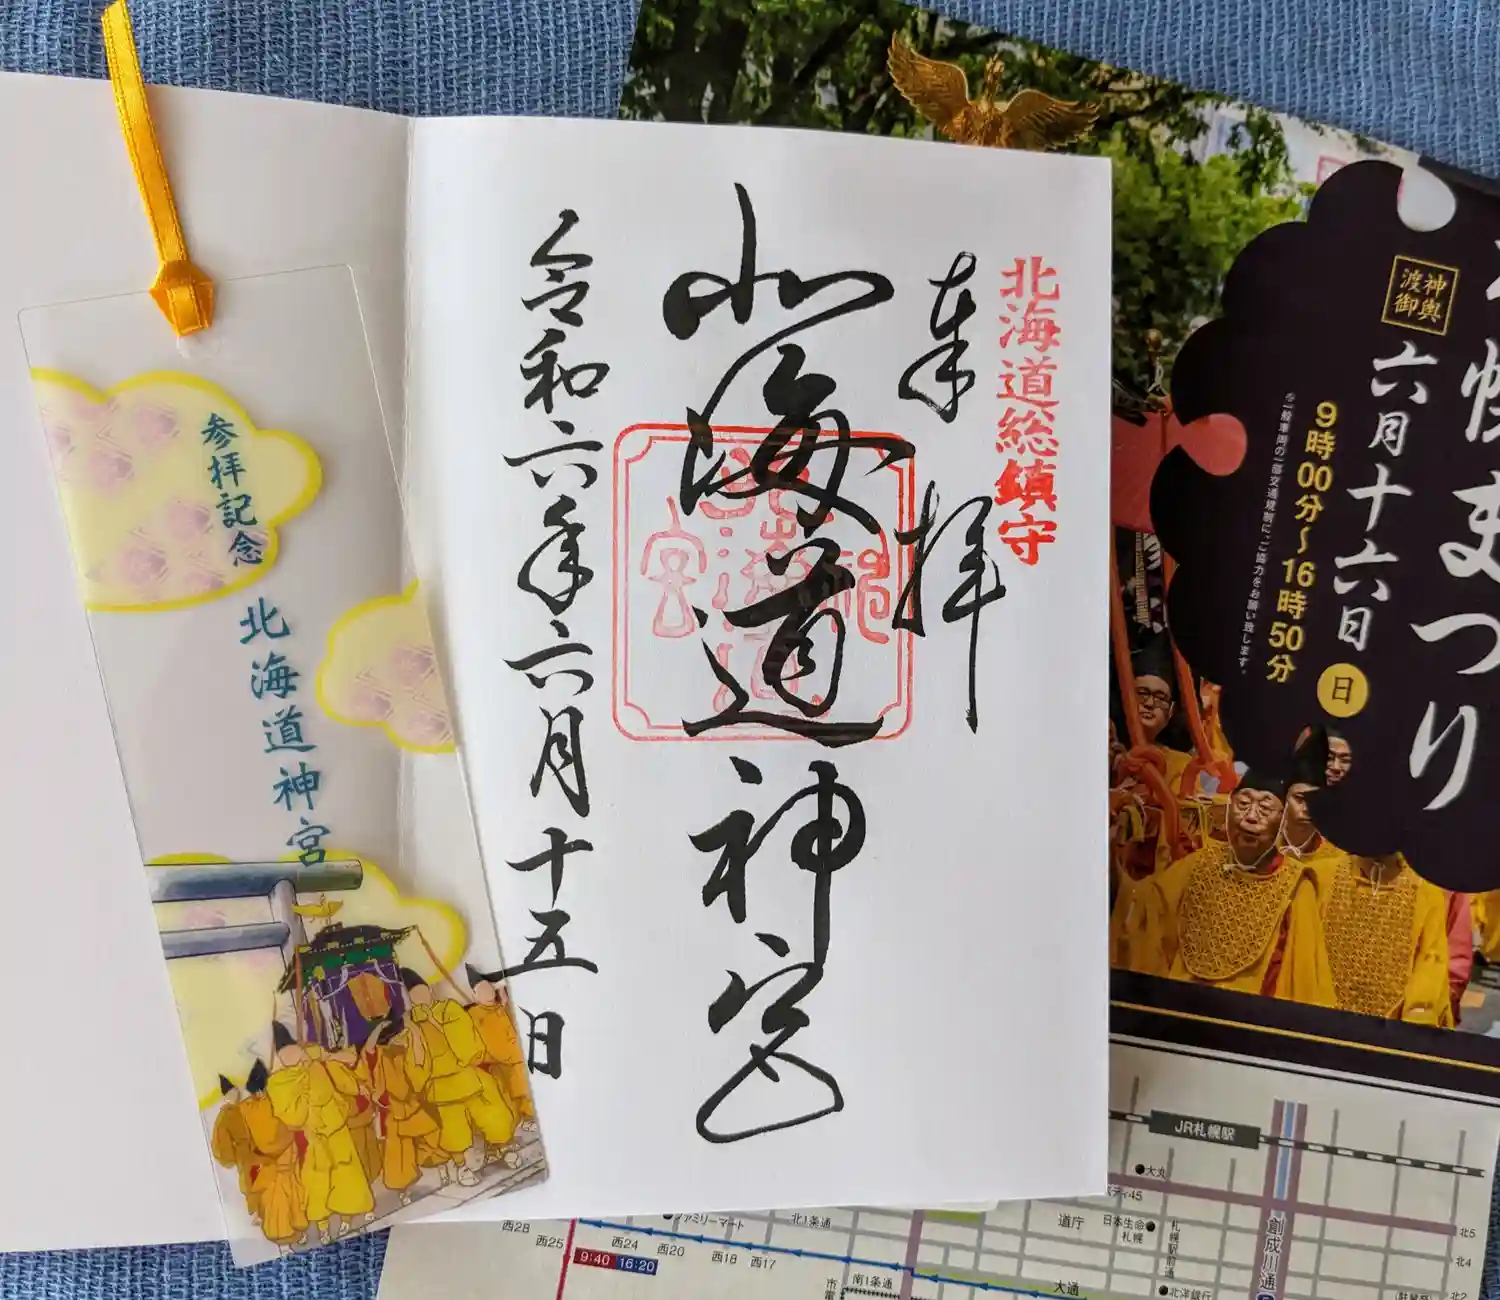 北海道総鎮守
奉拝
北海道神宮
令和六年六月十五日
参拝記念
北海道神宮
まつり
神輿
渡御
六月十六日
日
9時00分〜16時50分
※一般車両の一部交通規制に、ご協力をお願い致します。
JR札幌駅
大丸
ファミリーマート
北1条通
道庁
日本生命
札幌
札幌駅前通
創成川通
北5
北4
北2
西28
西25
西24
西20
西18
西17
9:40
16:20
南1条通
市電
大通
北洋銀行